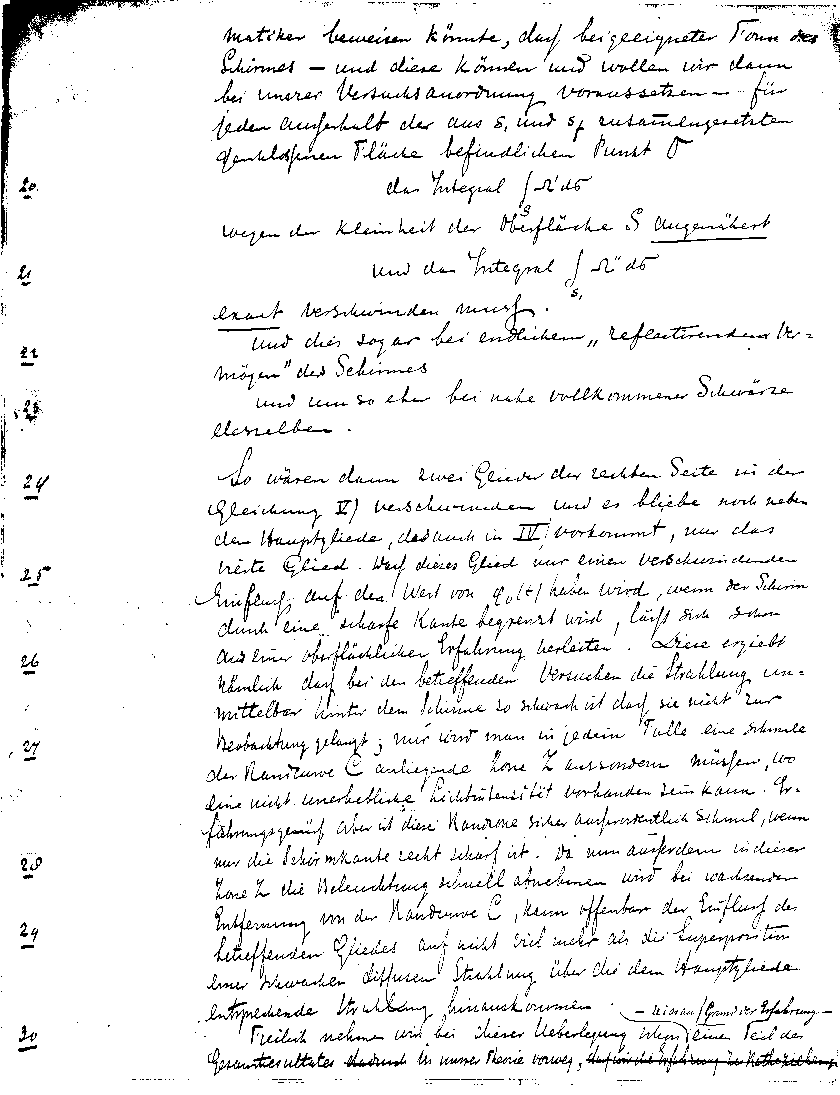 matiker beweisen könnte, daß bei geeigneter Form des
Schirmes – und diese können und wollen wir dann
bei unsrer Versuchsanordnung voraussetzen – für
jeden außerhalb der aus s, und sf zusammengesetzten
geschlossenen Fläche befindlichen Punkt σ
20. das Integral ∫ Ω' dσ
S
wegen der Kleinheit der Oberfläche S angenähert
21 und das Integral ∫ Ω'' dσ
s,
exact verschwinden muß.
und dies sogar bei endlichem „reflectirendem Ver=
22
mögen" des Schirmes
und um so eher bei nahe vollkommener Schwärze
23
desselben.
So wären dann zwei Glieder der rechten Seite in der
24
Gleichung V) verschwunden und es bliebe noch neben
dem Hauptgliede, das auch in IV) vorkommt, nur das
dritte Glied. Daß dieses Glied nur einen verschwindenden
25
Einfluß auf den Wert von φ0(t) haben wird, wenn der Schirm
durch eine scharfe Kante begrenzt wird, läßt sich schon
aus einer oberflächlichen Erfahrung herleiten. Diese ergiebt
26
nämlich daß bei den betreffenden Versuchen die Strahlung un=
mittelbar hinter dem Schirme so schwach ist daß sie nicht zur
Beobachtung gelangt; nur wird man in jedem Falle eine schmale
27
der Randcurve C anliegende Zone Z aussondern müßen, wo
eine nicht unerhebliche Lichtintensität vorhanden sein kann. Er-
fahrungsgemäß aber ist diese Randzone sicher außerordentlich schmal, wenn
nur die Schirmkante recht scharf ist. Da nun außerdem in dieser
28
Zone Z die Beleuchtung schnell abnehmen wird bei wachsender
Entfernung von der Randcurve C, kann offenbar der Einfluß des
29
betreffenden Gliedes auf nicht viel mehr als die Superposition
einer schwachen diffusen Strahlung über die dem Hauptgliede
entsprechende Strahlung hinauskommen.
– Grund der Erfahrung –
30
Freilich nehmen wir bei dieser Ueberlegung schon einen Teil des
Gesamtresultates dadurch in unsrer Theorie vorweg,